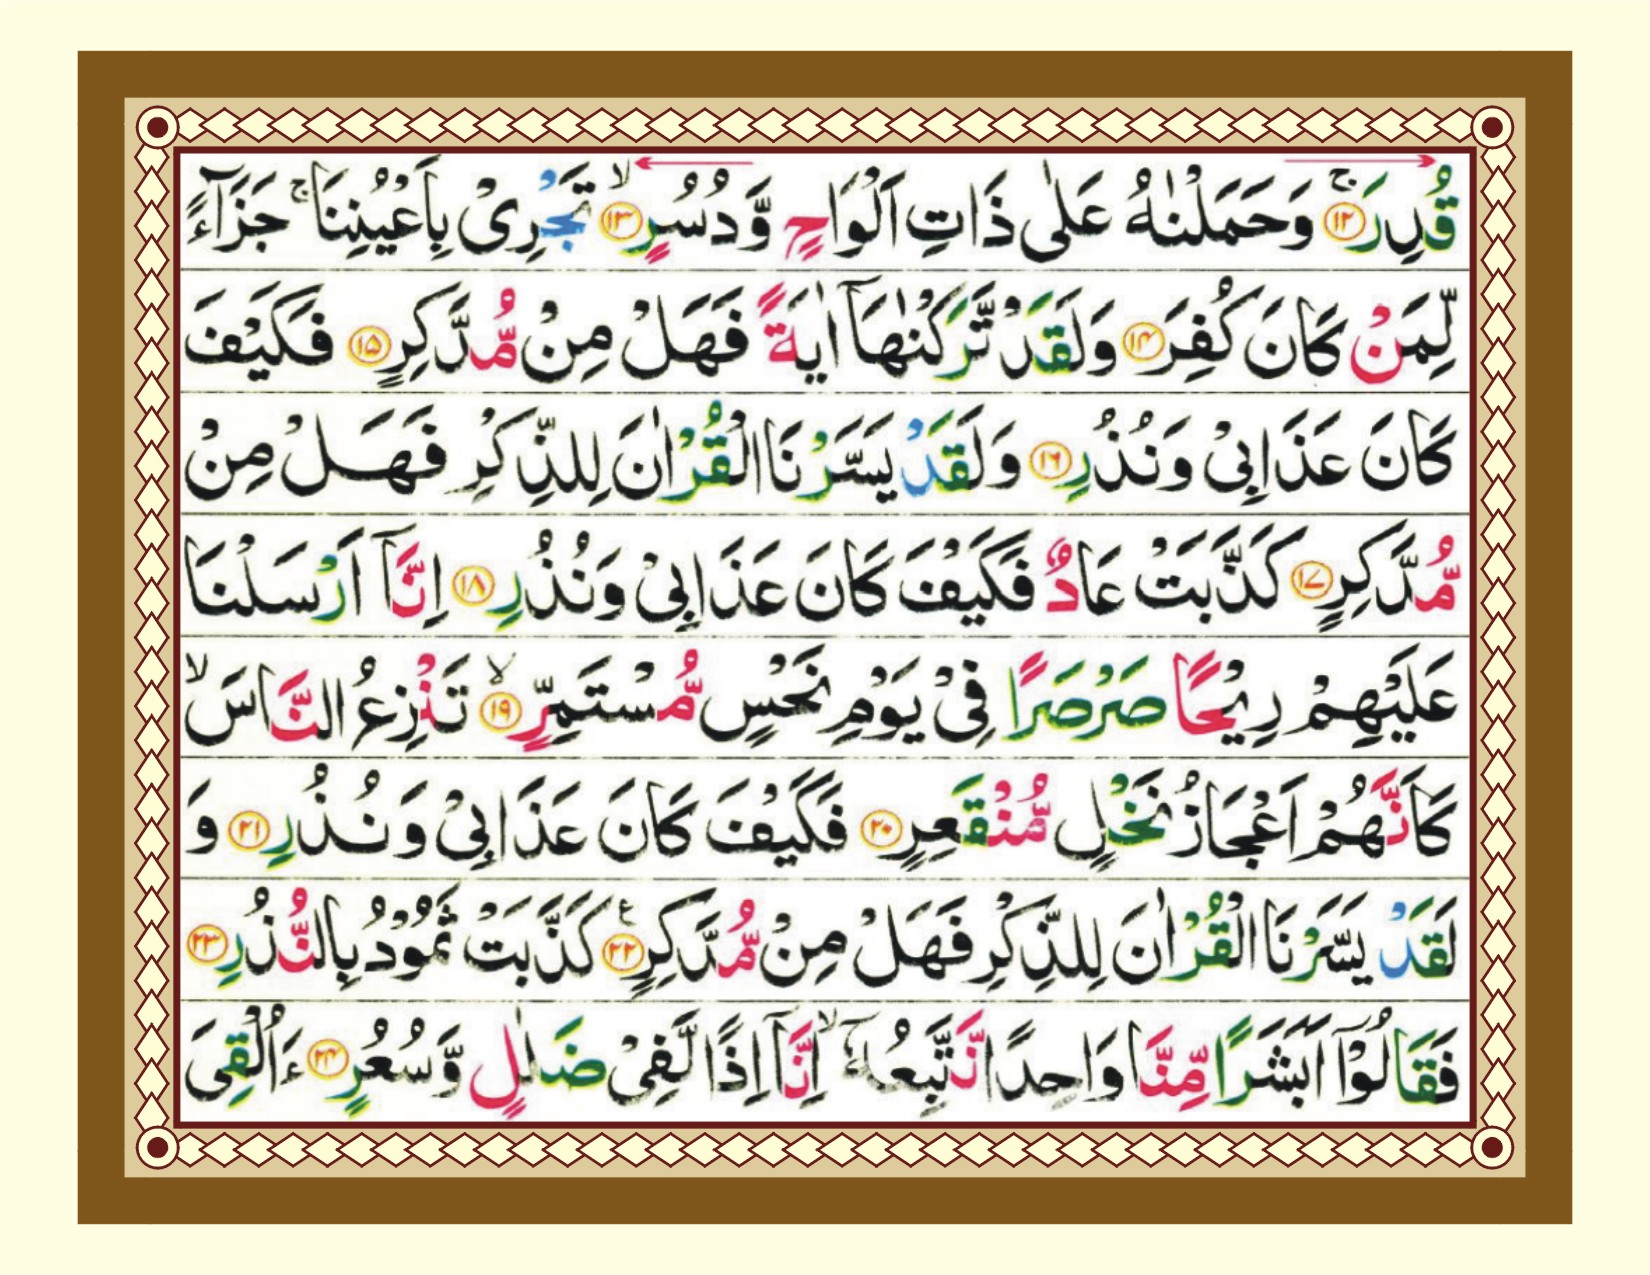 قُدِرَ ﴿۱۲﴾ۚ وَحَمَلْنٰهُ عَلٰى ذَاتِ اَلْوَاحٍ وَّدُسُرٍ ﴿۱۳﴾ۙ تَجْرِىْ بِاَعْيُنِنَا ۚ جَزَآءً
لِّمَنْ كَانَ كُفِرَ ﴿۱۴﴾ وَلَقَدْ تَّرَكْنٰهَاۤ اٰيَةً فَهَلْ مِنْ مُّدَّكِرٍ ﴿۱۵﴾ فَكَيْفَ
كَانَ عَذَابِىْ وَنُذُرِ ﴿۱۶﴾ وَلَقَدْ يَسَّرْنَا الْقُرْاٰنَ لِلذِّكْرِ فَهَلْ مِنْ
مُّدَّكِرٍ ﴿۱۷﴾ كَذَّبَتْ عَادٌ فَكَيْفَ كَانَ عَذَابِىْ وَنُذُرِ ﴿۱۸﴾ اِنَّاۤ اَرْسَلْنَا
عَلَيْهِمْ رِيْحًا صَرْصَرًا فِىْ يَوْمِ نَحْسٍ مُّسْتَمِرٍّ ﴿۱۹﴾ۙ تَنْزِعُ النَّاسَ ۙ
كَاَنَّهُمْ اَعْجَازُ نَخْلٍ مُّنْقَعِرٍ ﴿۲۰﴾ فَكَيْفَ كَانَ عَذَابِىْ وَنُذُرِ ﴿۲۱﴾ وَ
لَقَدْ يَسَّرْنَا الْقُرْاٰنَ لِلذِّكْرِ فَهَلْ مِنْ مُّدَّكِرٍ ﴿۲۲﴾ ع كَذَّبَتْ ثَمُوْدُ بِالنُّذُرِ ﴿۲۳﴾
فَقَالُوْۤا اَبَشَرًا مِّنَّا وَاحِدًا نَّتَّبِعُهٗۤ ۙ اِنَّاۤ اِذًا لَّفِىْ ضَلٰلٍ وَّسُعُرٍ ﴿۲۴﴾ ءَاُلْقِىَ